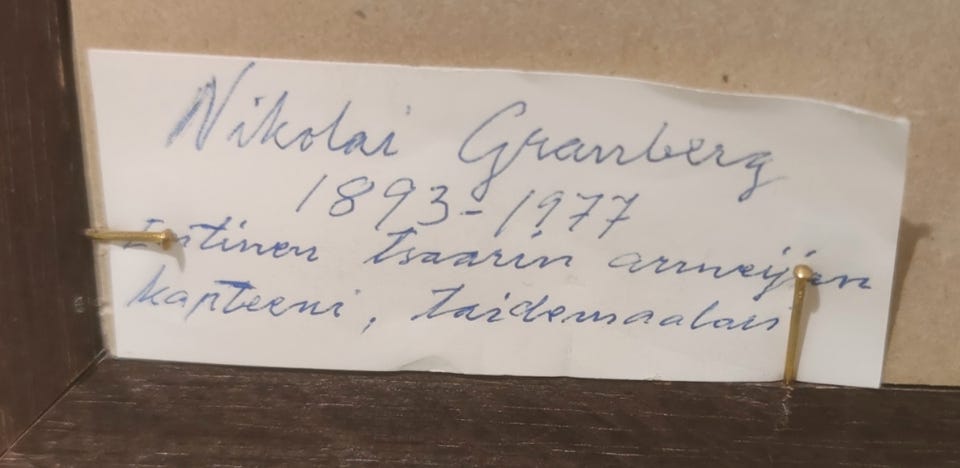 Nikolai Granberg
1893-1977
Entinen tsaarin armeijan
kapteeni, taidemaalari